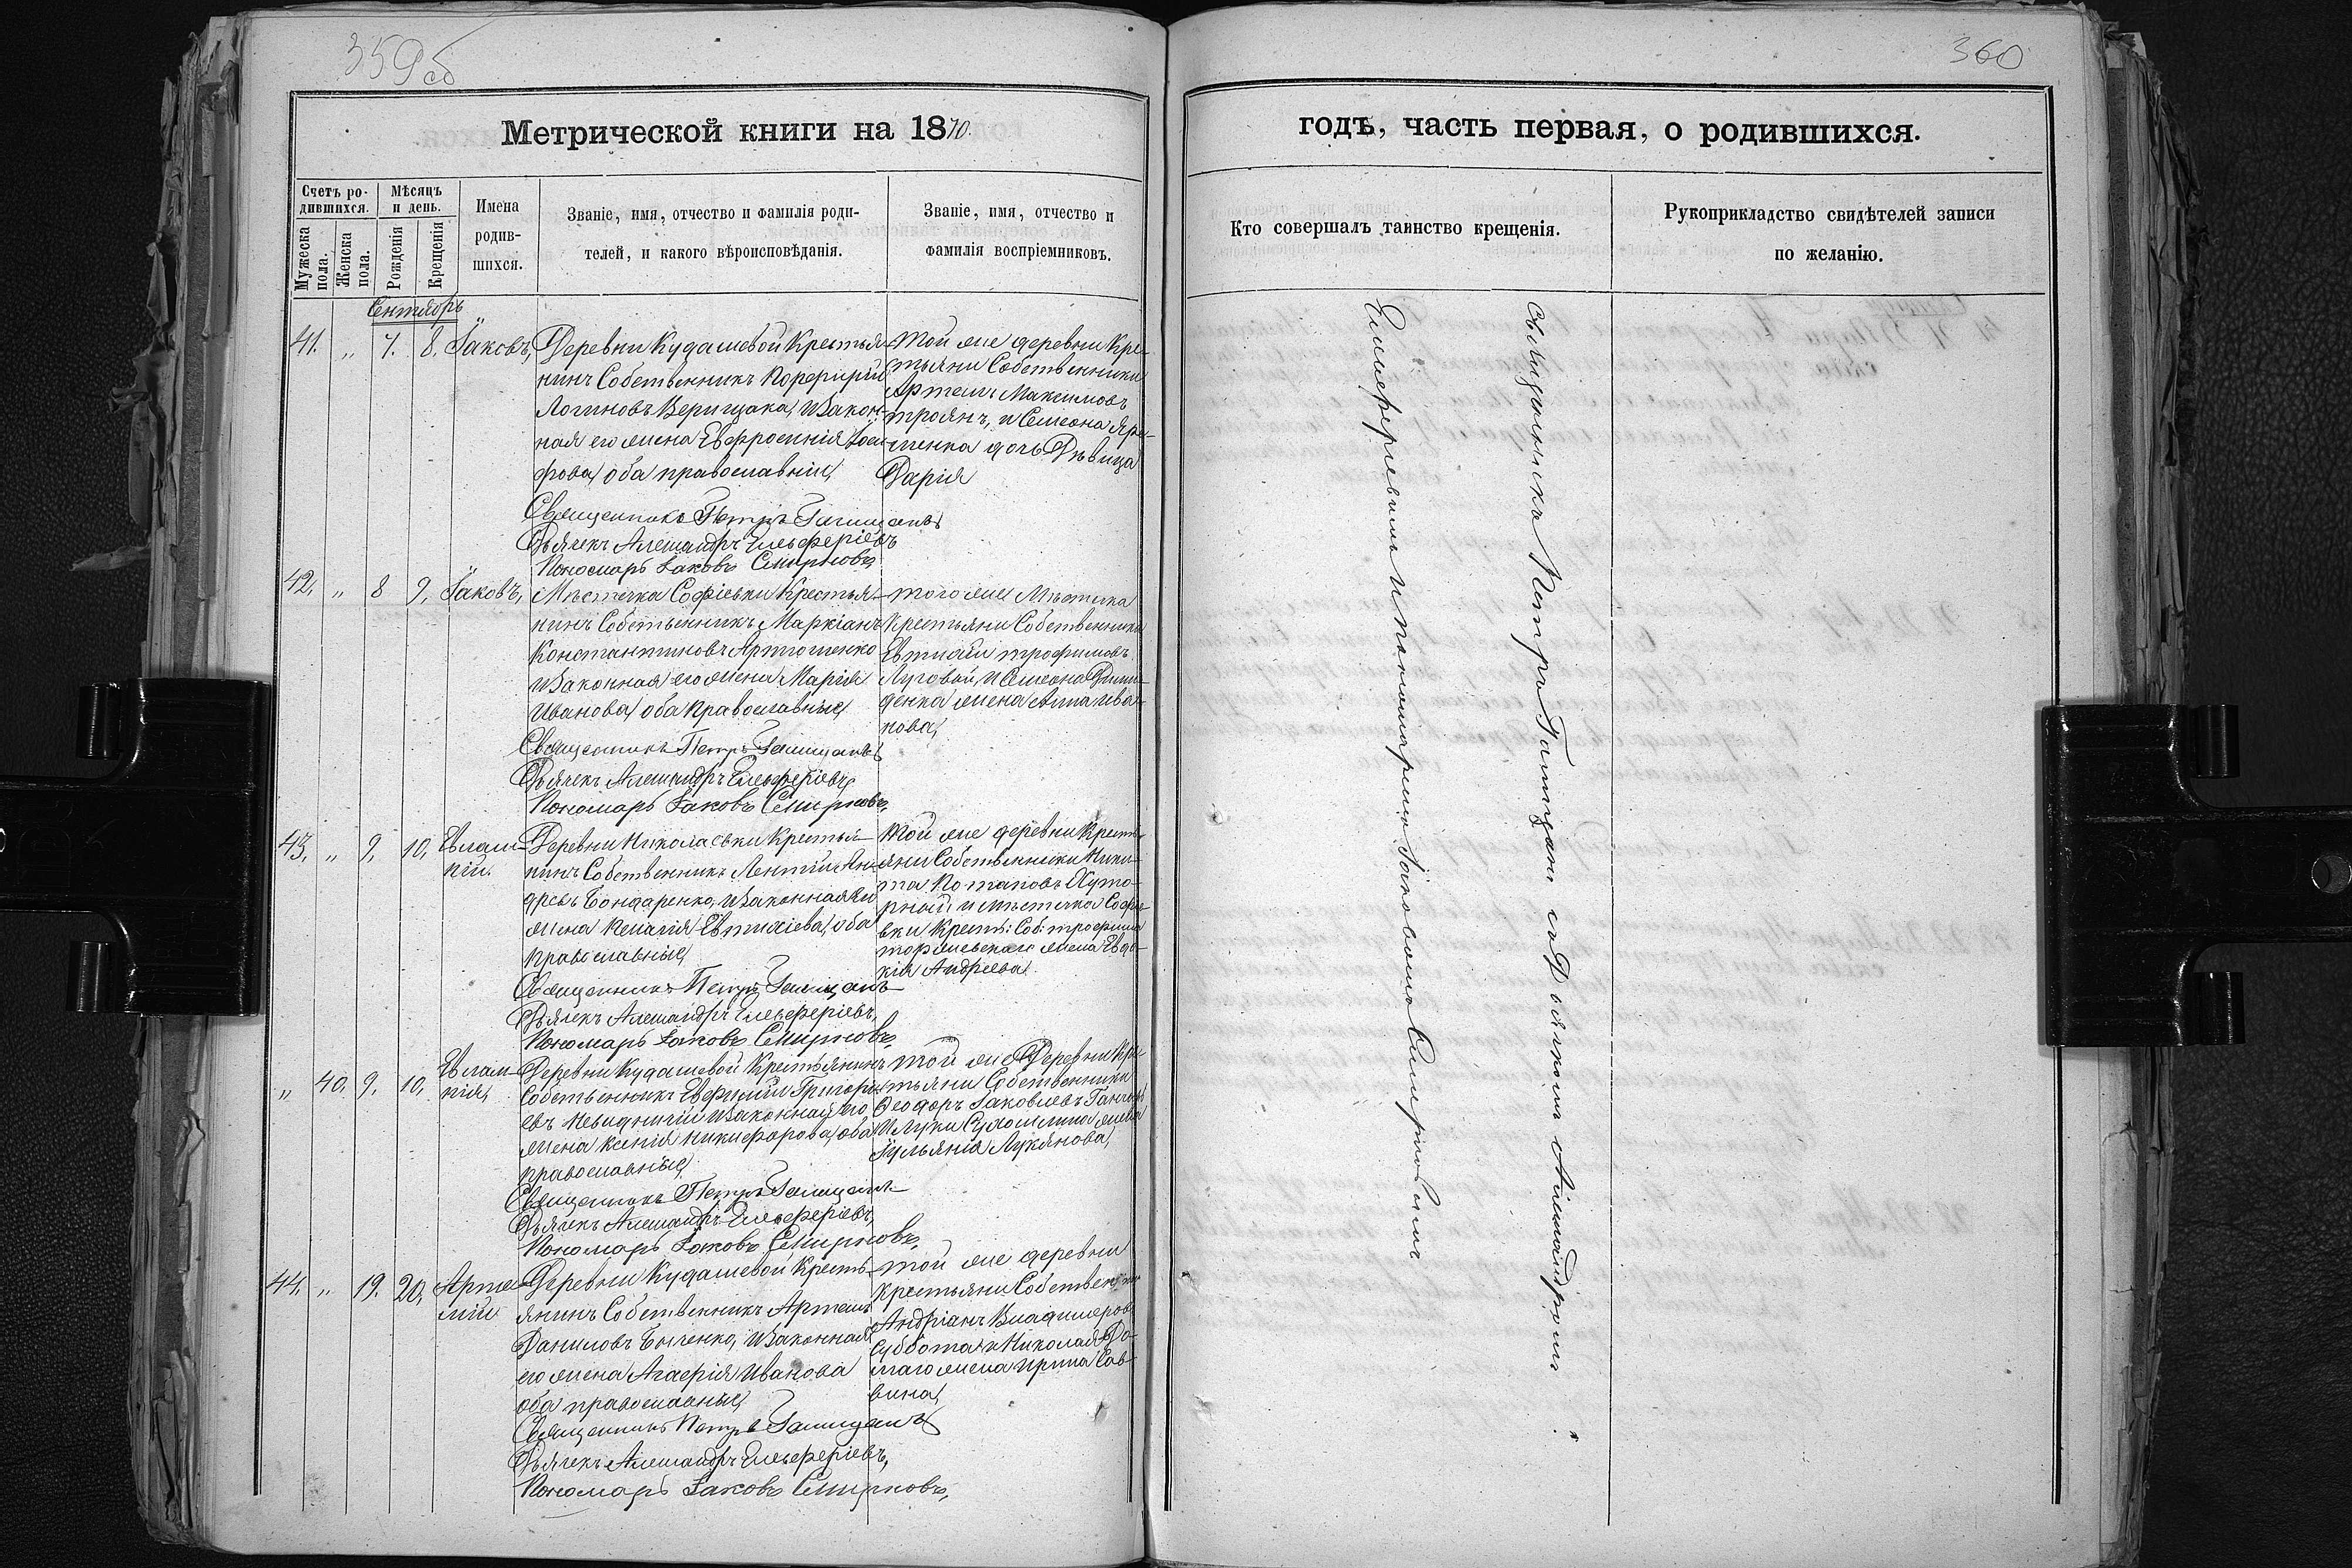 359об
Метрической книги на 1870.
Счетъ ро-
дившихся.
Мѣсяцъ
и день.
Мужеска
пола.
Женска
пола.
Рожденія
Крещенія
Имена
родив-
шихся.
Званіе, имя, отчество и фамилія роди-
телей, и какого вѣроисповѣданія.
Званіе, имя, отчество и
фамилія воспріемниковъ.
Сентябрь
41. „ 7. 8. Іаковъ,
Деревни Кудашевой Крестья-
нинъ Собственникъ Порфирій
Логиновъ Верещака, и Закон-
ная его жена Евфросинія Іоси-
фова, оба православніи,
Священникъ Петръ
Дьячекъ Александръ Елевферіевъ
Пономарь Іаковъ Смирновъ,
Той же деревни Кре-
стьяни Собственники
Артемъ Максимовъ
Троянъ, и Симеона Яре-
менка дочь Дѣвица
Дарія
42, „ 8 9, Іаковъ,
Мѣстечка Софіевки Крестья-
нинъ Собственникъ Маркіанъ
Константиновъ Артюшенко
и Законная его жена Марія
Иванова, оба православные,
Священникъ Петръ
Дьячекъ Александръ Елевферіевъ,
Пономарь Іаковъ Смирновъ,
того же Мѣстечка
Крестьяни Собственники
Евтихій Трофимовъ
Луговой, и Симеона
денка жена Анна Ива-
нова,
43, „ 9, 10, Евлам-
пій.
Деревни Николаевки Крестья-
нинъ Собственникъ Леонтій Ан-
дреевъ Бондаренко, и Законная его
жена Пелагія Евтихіева, оба
православные,
Священникъ Петръ
Дьячекъ Александръ Елевферіевъ,
Пономарь Іаковъ Смирновъ,
Той же деревни Кресть-
яни Собственники Ники-
та Потаповъ Хуто-
рный и мѣстечка Софіе-
вки Крест: Соб: Трофима
жена Евдо-
кія Андреева.
„ 40. 9. 10, Евлам-
пія,
Деревни Кудашевой Крестьянинъ
Собственникъ Евфимій Григорі-
евъ Невидничій и Законная его
жена Ксенія Никифорова, оба
православные,
Священникъ Петръ
Дьячекъ Александръ Елевферіевъ,
Пономарь Іаковъ Смирновъ,
Той же Деревни Кре-
стьяни Собственники
Ѳеодоръ Іаковлевъ
и Луки Сухомлина жена
Іульянія Лукянова,
44, „ 19. 20, Арте-
мій
Деревни Кудашевой Кресть-
янинъ Собственникъ Артемъ
Даниловъ Быченко, и Законная
его жена Агафія Иванова
оба православные,
Священникъ Петръ
Дьячекъ Александръ Елевферіевъ,
Пономарь Іаковъ Смирновъ,
той же деревни
Крестьяни Собственники
Андріанъ Владимеровъ
Суббота и Николая До-
маго жена Ирина Сав-
вина,
360
годѣ, часть первая, о родившихся.
Кто совершалъ таинство крещенія.
Рукоприкладство свидѣтелей записи
по желанію.
Священникъ Петръ съ Дьячкомъ Александромъ
Елевферіевымъ и пономаремъ Іаковомъ Смирновымъ